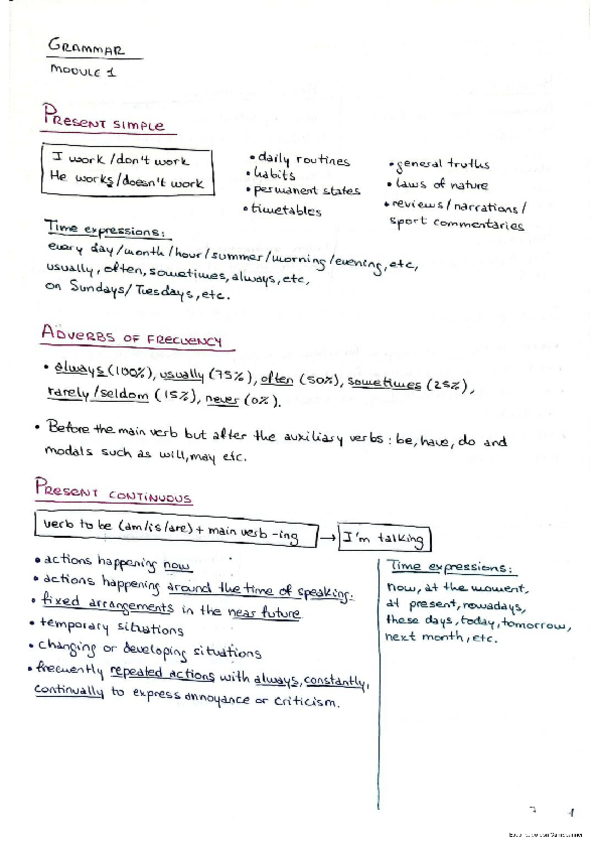 GRAMMAR
MODULE 1
PRESENT SIMPLE
I work/don't work
He works/doesn't work
• daily routines
• habits
• permanent states
• timetables
• general truths
• laws of nature
• reviews/narrations/
sport commentaries
Time expressions:
every day/month/hour/summer/morning/evening, etc,
usually, often, sometimes, always, etc,
on Sundays/Tuesdays, etc.
ADVERBS OF FRECUENCY
• always (100%), usually (75%), often (50%), sometimes (25%),
rarely/seldom (15%), never (0%).
• Before the main verb but after the auxiliary verbs: be, have, do and
modals such as will, may etc.
PRESENT CONTINUOUS
verb to be (am/is/are) + main verb -ing → I'm talking
• actions happening now
• actions happening around the time of speaking.
• fixed arrangements in the near future
• temporary situations
• changing or developing situations
• frecuently repeated actions with always, constantly,
continually to express annoyance or criticism.
Time expressions:
now, at the moment,
at present, nowadays,
these days, today, tomorrow,
next month, etc.
1